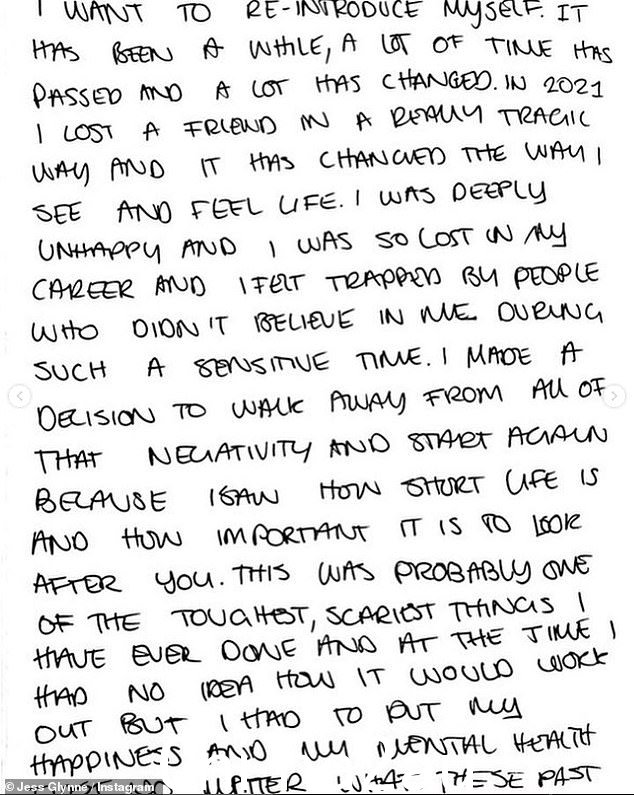 I WANT TO RE-INTRODUCE MYSELF. IT
HAS BEEN A WHILE, A LOT OF TIME HAS
PASSED AND A LOT HAS CHANGED. IN 2021
I LOST A FRIEND IN A REALLY TRAGIC
WAY AND IT HAS CHANGED THE WAY I
SEE AND FEEL LIFE. I WAS DEEPLY
UNHAPPY AND I WAS SO LOST IN MY
CAREER AND I FELT TRAPPED BY PEOPLE
WHO DIDN'T BELIEVE IN ME DURING
SUCH A SENSITIVE TIME. I MADE A
DECISION TO WALK AWAY FROM ALL OF
THAT NEGATIVITY AND START AGAIN
BECAUSE I SAW HOW SHORT LIFE IS
AND HOW IMPORTANT IT IS TO LOOK
AFTER YOU. THIS WAS PROBABLY ONE
OF THE TOUGHEST, SCARIEST THINGS I
HAVE EVER DONE AND AT THE TIME I
HAD NO IDEA HOW IT WOULD WORK
OUT BUT I HAD TO PUT MY
HAPPINESS AND MY MENTAL HEALTH
MATTER THESE PAST
© Jess Glynne / Instagram